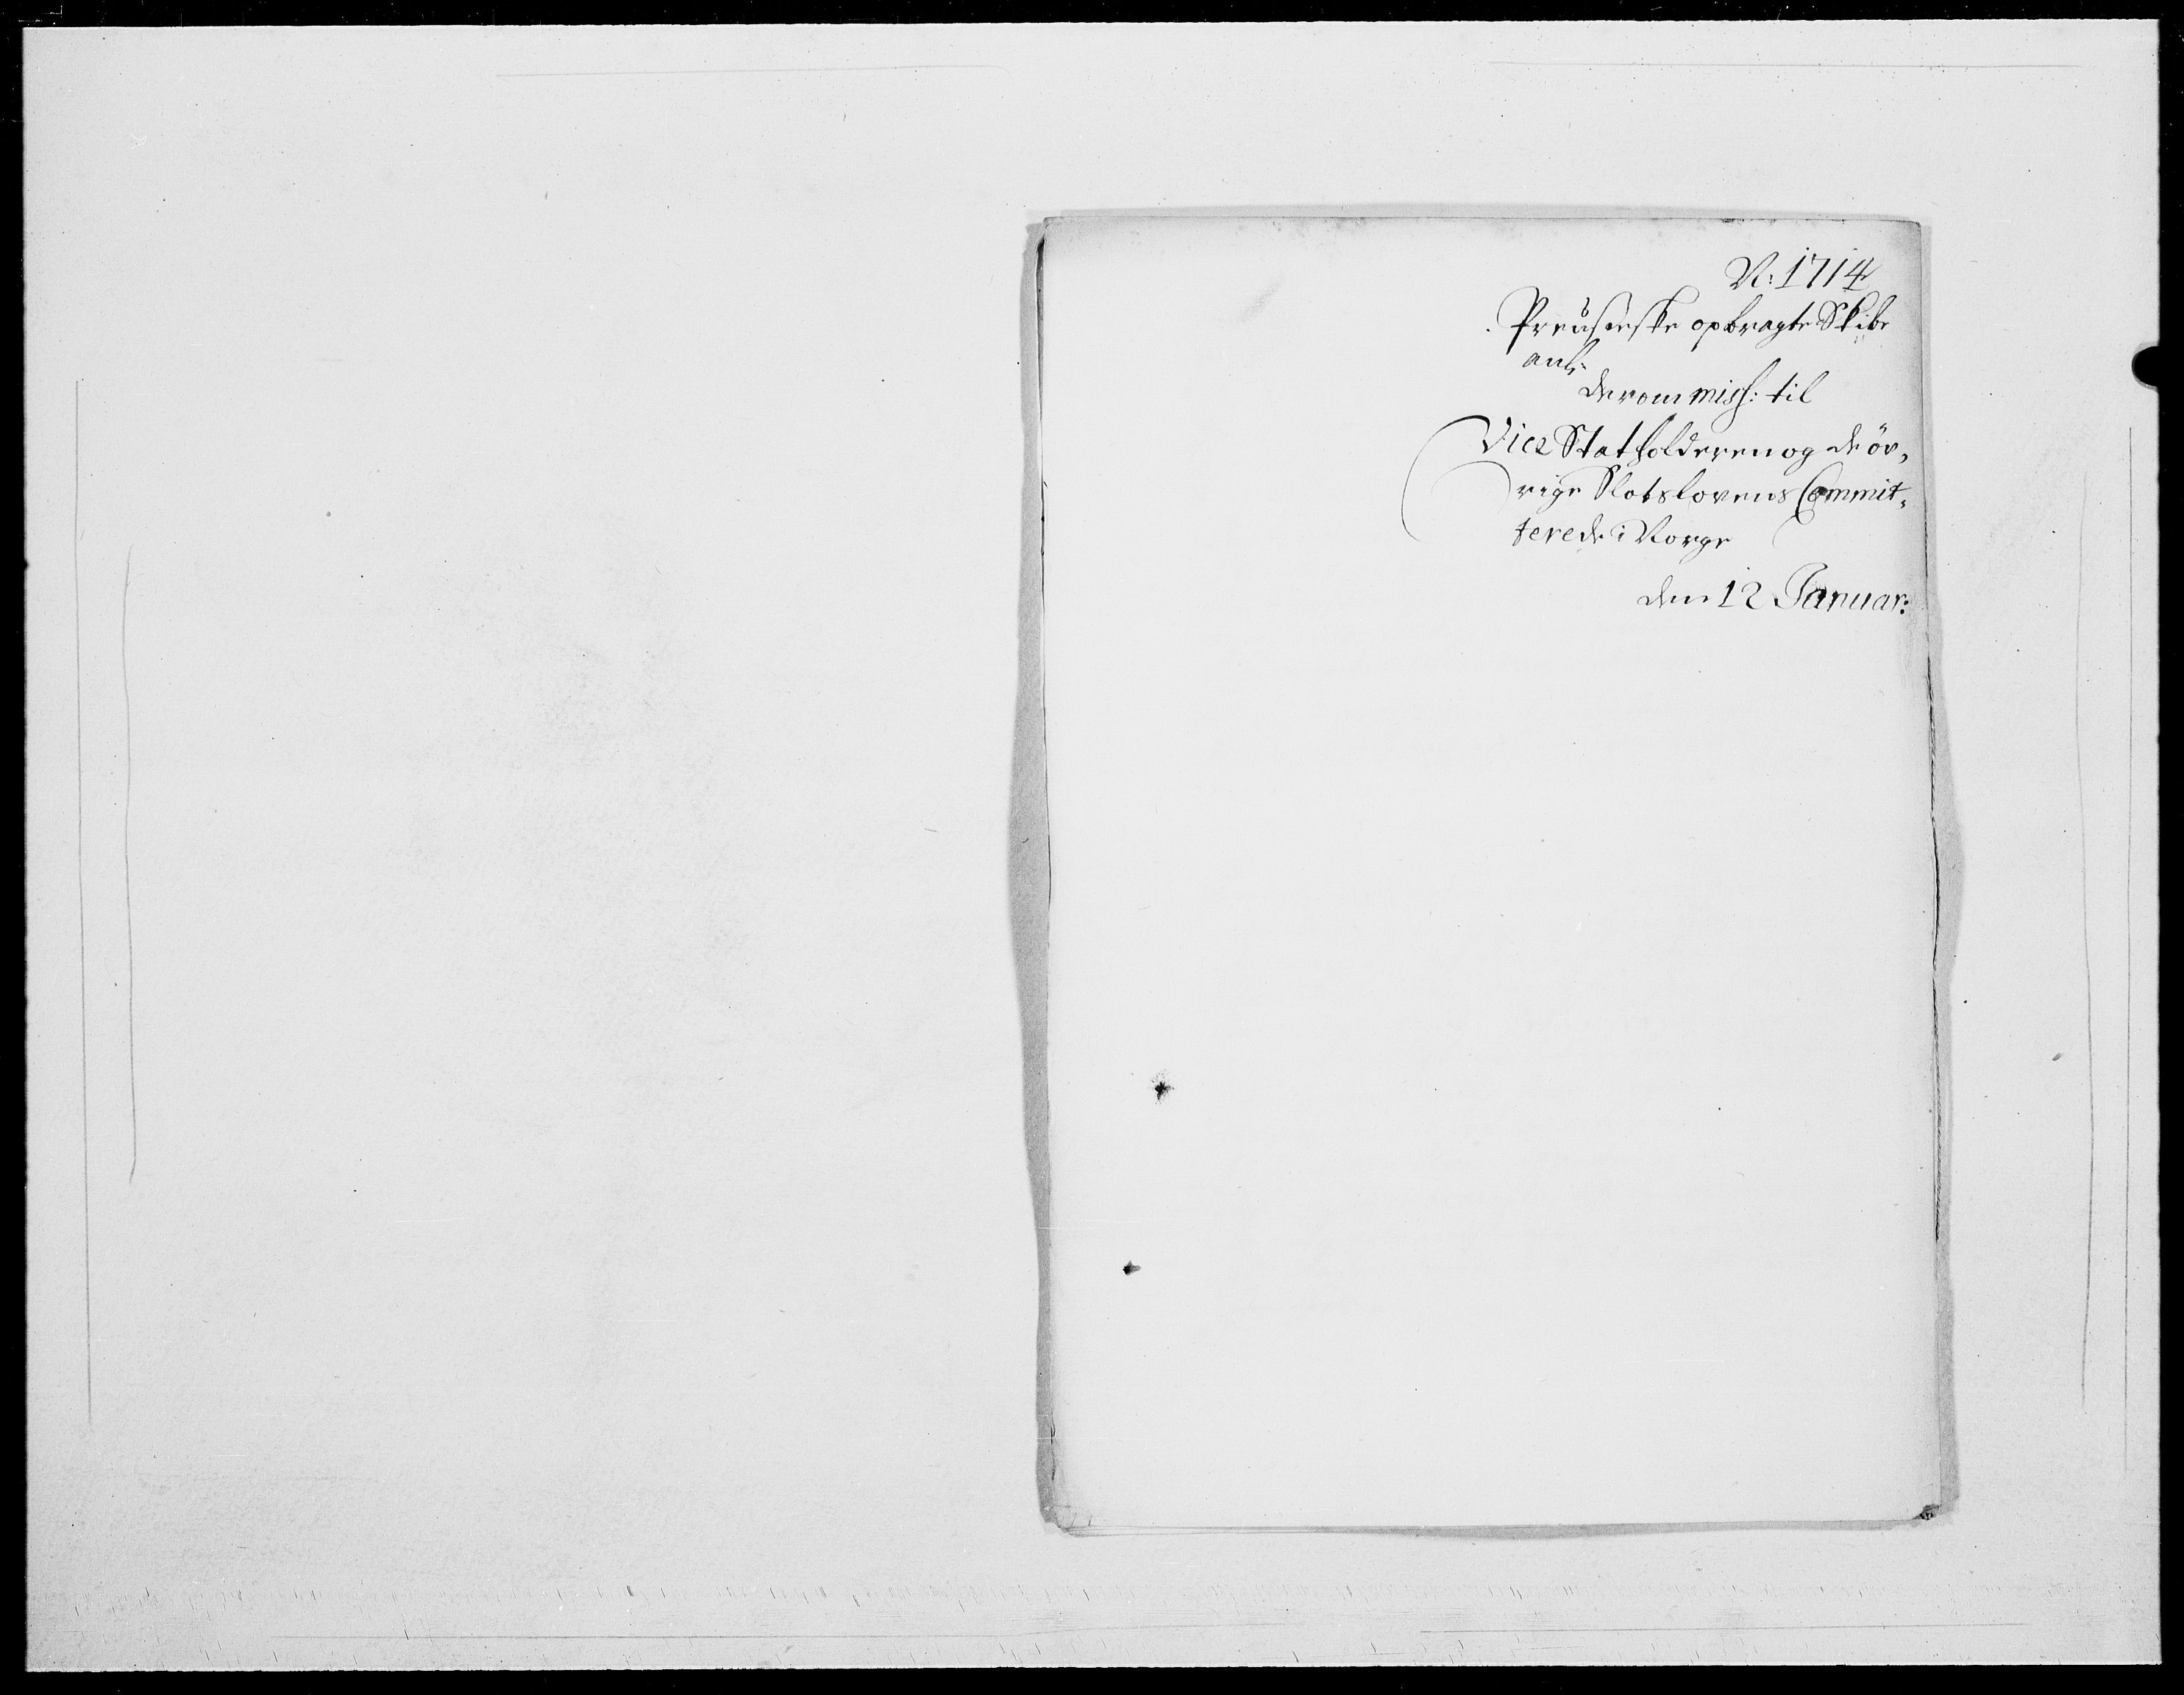 N: 1714
Preusiske opbragte Skibe
anl:
derom miss: til
Vice Statholderen og de öv,
rige Slotslovens Commit,
terede i Norge
den 12 Januar: